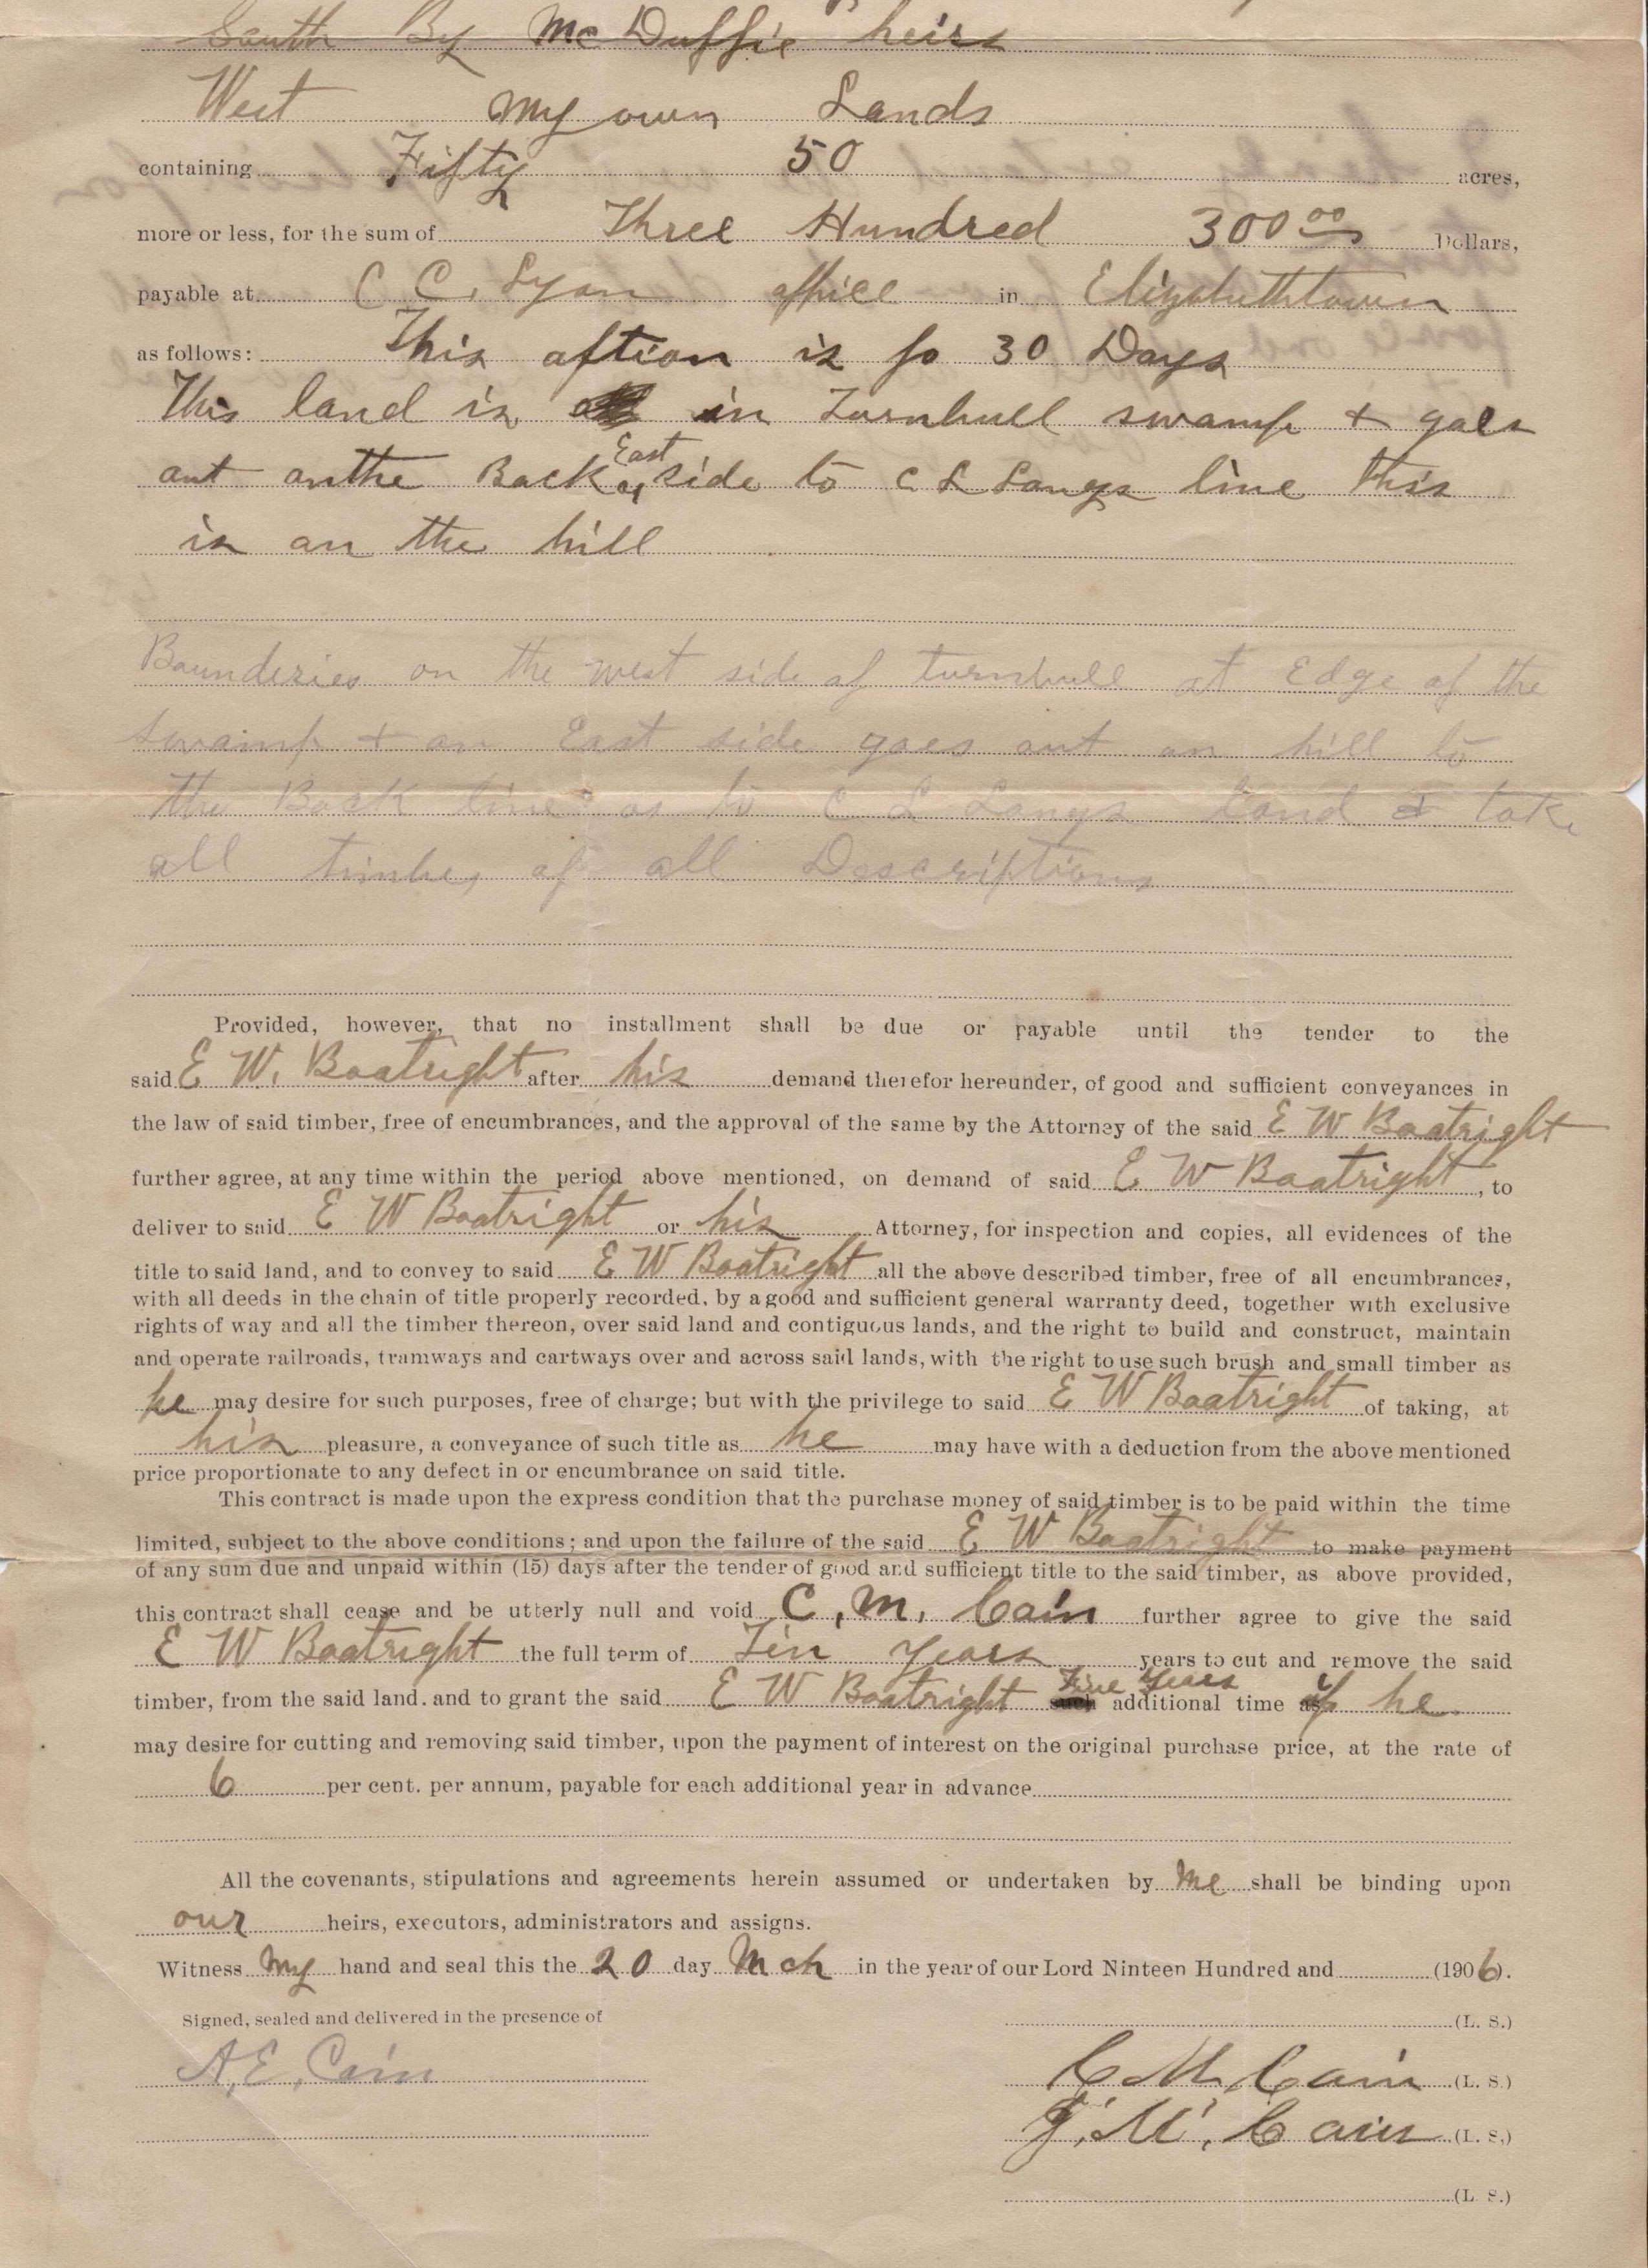 South By McDuffie heirs
West my own Lands
containing Fifty 50 acres,
more or less, for the sum of Three Hundred 300 00 Dollars,
payable at C C. Lyon office in Elizabethtown
as follows: This aftion is fo 30 Days
This land is in Turnbull swamp & goes
out on the Back East side to C L Longs line this
is on the hill
Bounderies on the west side of turnbull at Edge of the
swamp & on East side goes out on hill to
the Back line or to C L Longs land & take
all timber of all Descriptions
Provided, however, that no installment shall be due or payable until the tender to the
said E W. Boatright after his demand therefor hereunder, of good and sufficient conveyances in
the law of said timber, free of encumbrances, and the approval of the same by the Attorney of the said E W Boatright
further agree, at any time within the period above mentioned, on demand of said E W Boatright, to
deliver to said E W Boatright or his Attorney, for inspection and copies, all evidences of the
title to said land, and to convey to said E W Boatright all the above described timber, free of all encumbrances,
with all deeds in the chain of title properly recorded, by a good and sufficient general warranty deed, together with exclusive
rights of way and all the timber thereon, over said land and contiguous lands, and the right to build and construct, maintain
and operate railroads, tramways and cartways over and across said lands, with the right to use such brush and small timber as
he may desire for such purposes, free of charge; but with the privilege to said E W Boatright of taking, at
his pleasure, a conveyance of such title as he may have with a deduction from the above mentioned
price proportionate to any defect in or encumbrance on said title.
This contract is made upon the express condition that the purchase money of said timber is to be paid within the time
limited, subject to the above conditions; and upon the failure of the said E W Boatright to make payment
of any sum due and unpaid within (15) days after the tender of good and sufficient title to the said timber, as above provided,
this contract shall cease and be utterly null and void C. M. Cain further agree to give the said
E W Boatright the full term of Ten years years to cut and remove the said
timber, from the said land. and to grant the said E W Boatright such Five Years additional time if he
may desire for cutting and removing said timber, upon the payment of interest on the original purchase price, at the rate of
6 per cent. per annum, payable for each additional year in advance
All the covenants, stipulations and agreements herein assumed or undertaken by me shall be binding upon
our heirs, executors, administrators and assigns.
Witness my hand and seal this the 20 day Mch in the year of our Lord Ninteen Hundred and (1906).
Signed, sealed and delivered in the presence of (L. S.)
A. E. Cain C M. Cain (L. S.)
J. M. Cain (L. S.)
(L. S.)